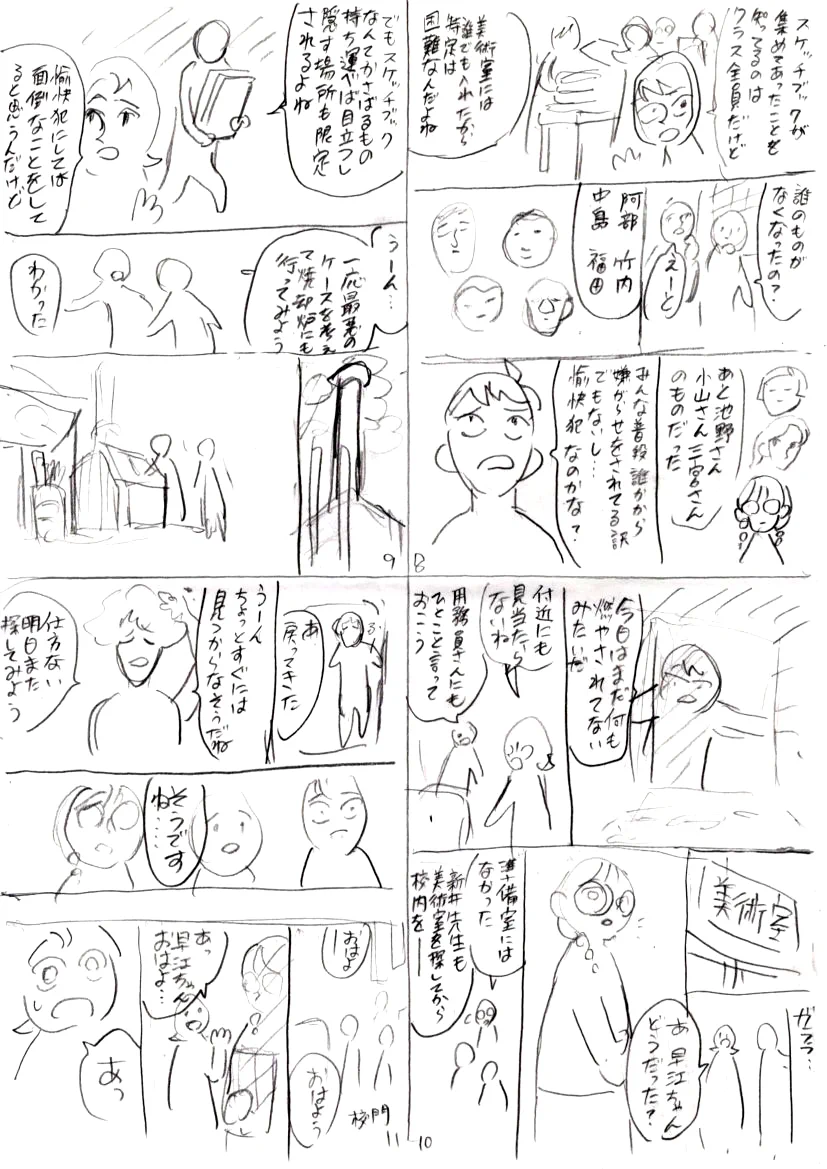 スケッチブックが
集めてあったことを
知ってるのは
クラス全員だけど
美術室には
誰でも入れたから
特定は
困難なんだよね
誰のものが
なくなったの?
えーと
阿部 竹内
中島 福田
あと池野さん
小山さん三宮さん
のものだった
みんな普段誰かから
嫌がらせをされてる訳
でもないし…
愉快犯なのかな?
8
でもスケッチブック
なんてかさばるもの
持ち運べば目立つし
隠す場所も限定
されるよね
愉快犯にしては
面倒なことをして
ると思うんだけど
うーん…
一応最悪の
ケースを考え
て焼却炉にも
行ってみよう
わかった
9
今日はまだ何も
燃やされてない
みたいだ
付近にも
見当たら
ないね
用務員さんにも
ひとこと言って
おこう
美術室
ガラ…
あ 早江ちゃん
どうだった?
準備室には
なかった
新井先生も
美術室を探してから
校内を―
10
あ、
戻ってきた
うーん
ちょっとすぐには
見つからなそうだね
仕方ない
明日また
探してみよう
そうです
ね……
おはよ
ー
おはよう
校門
あっ
早江ちゃん
おはよ…
あっ
11